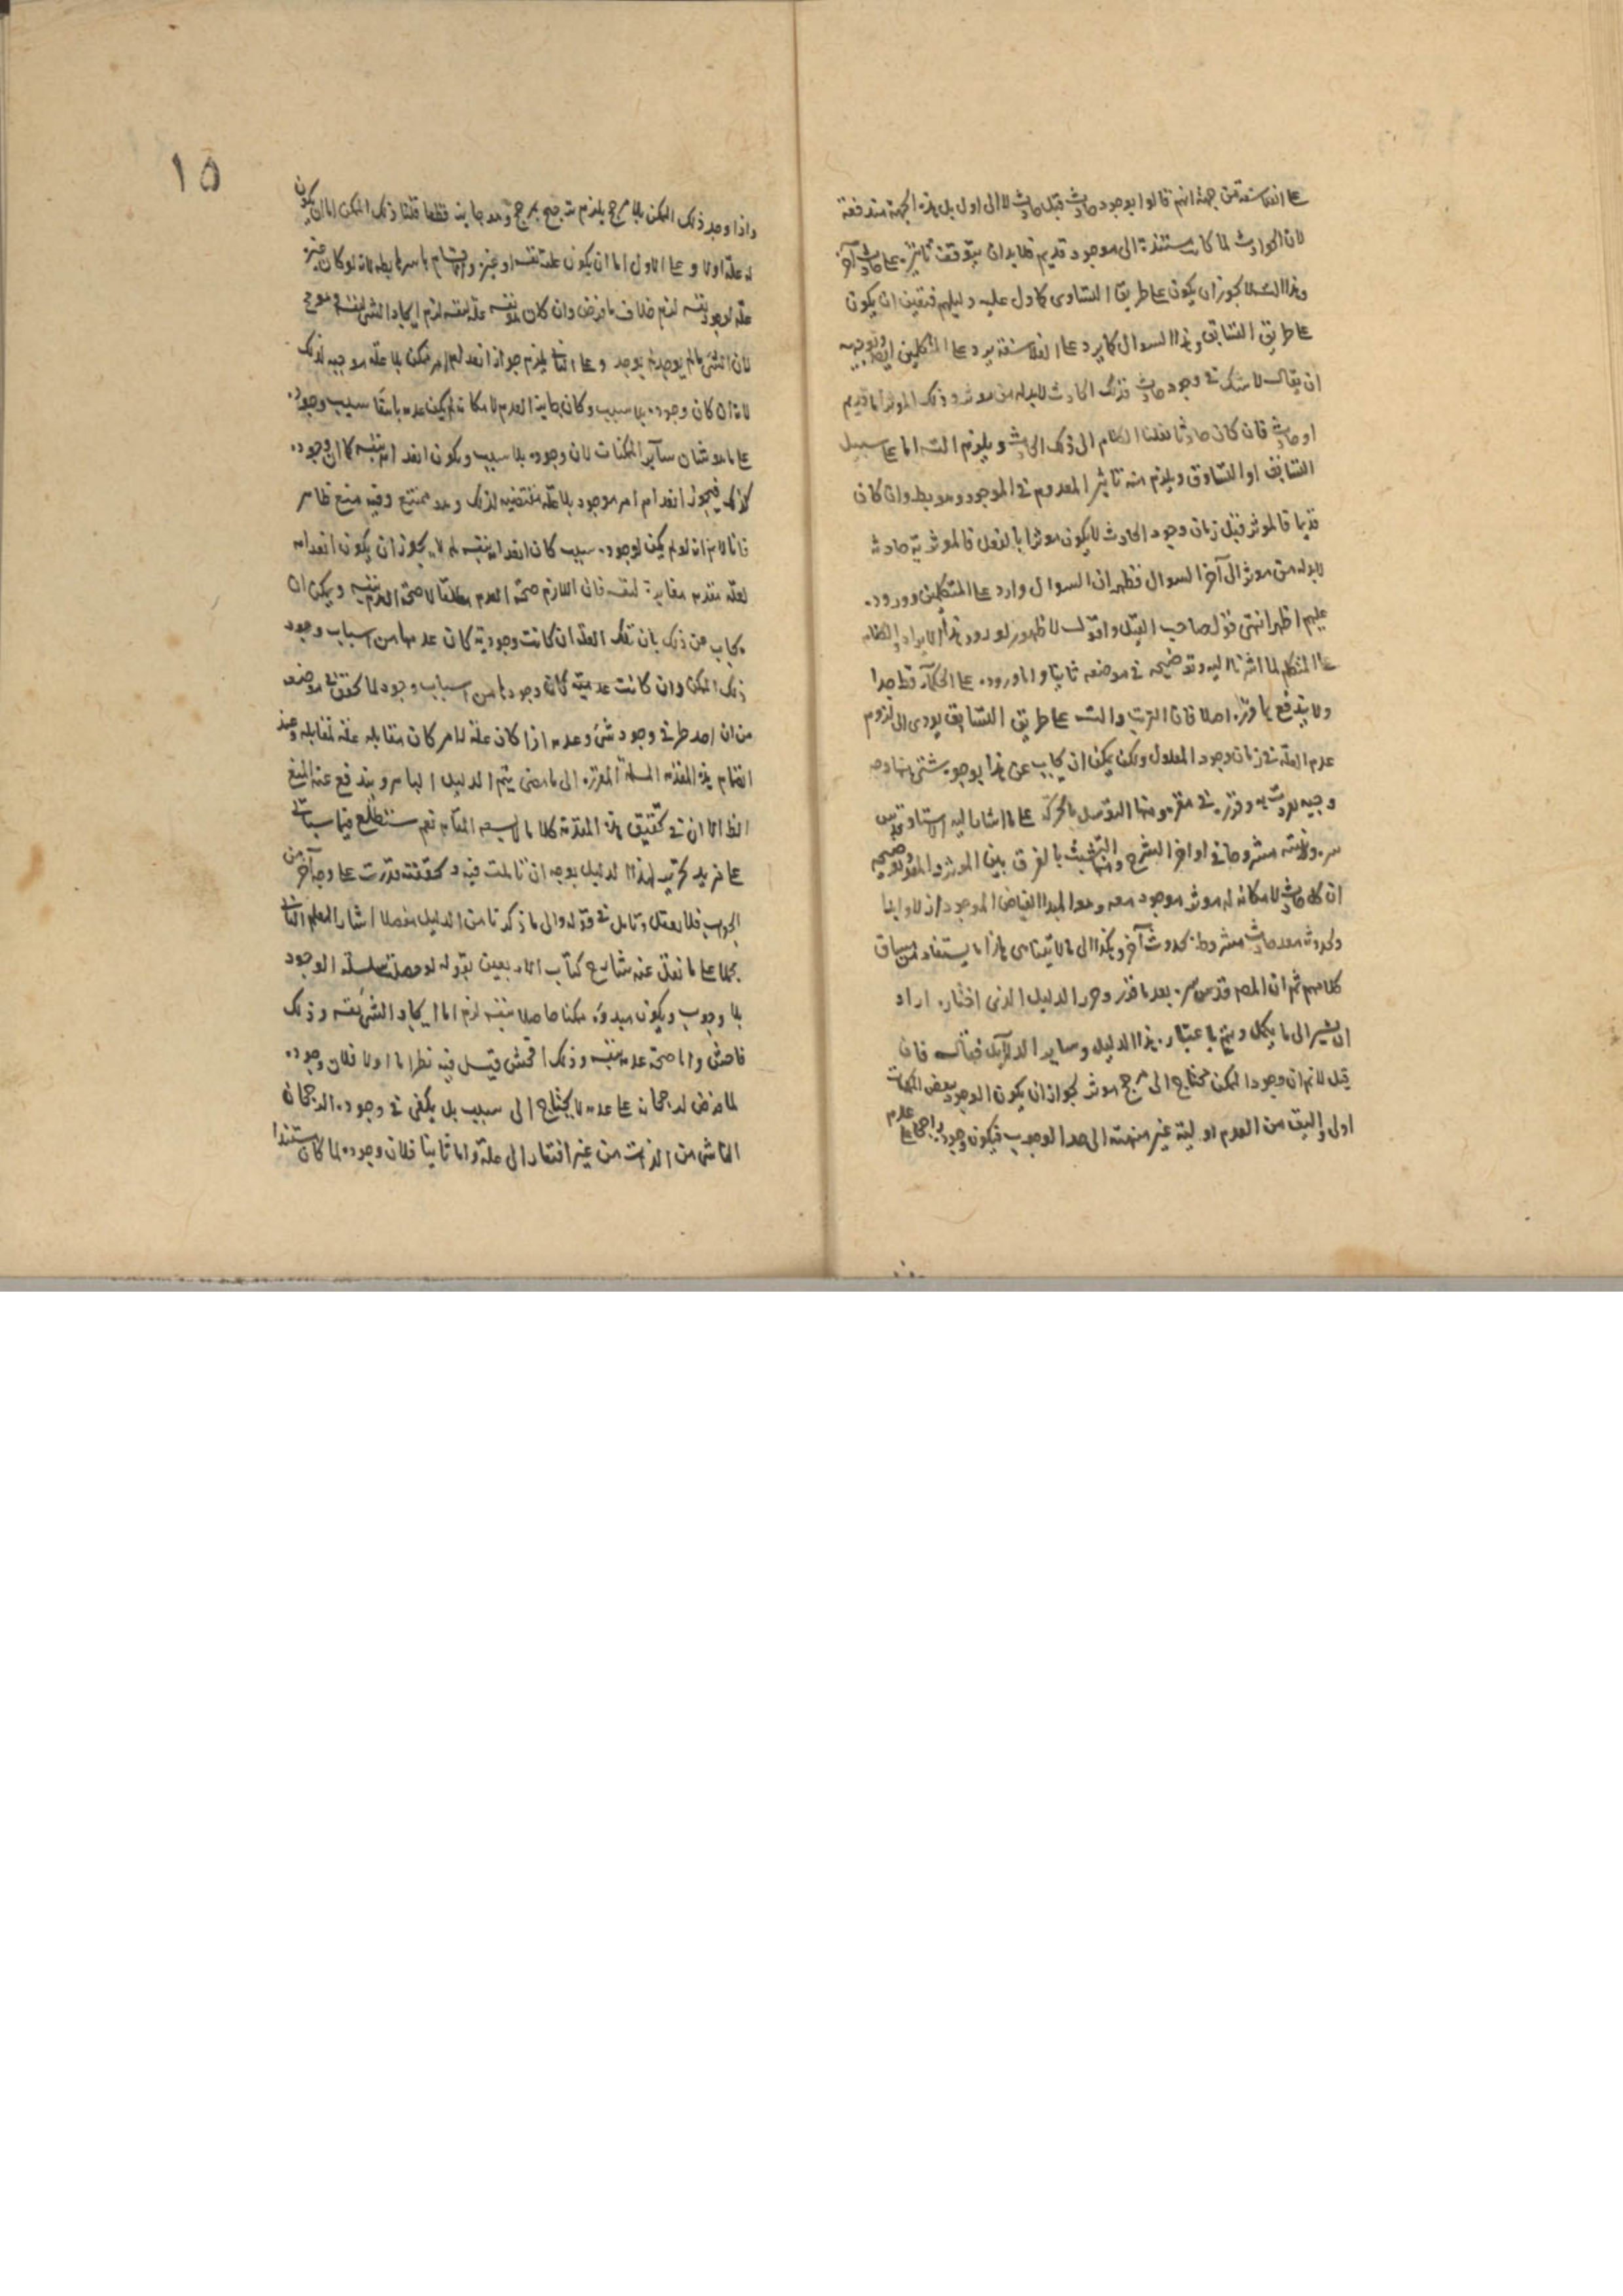 على الفلاسفة من جهة انهم قالوا بوجود حادث قبل حادث لا الى اول بل هذه الجهة مندفعة
لان الحوادث لما كانت مستندة الى موجود قديم فلابد ان يتوقف تاثيره على حادث آخر
وهذا التس لا يجوز ان يكون على طريق التساوق كما دل عليه دليلهم فتعين ان يكون
على طريق التسابق وهذا السوال كما يرد على الفلاسفة يرد على المتكلمين ايضا وتوجيهه
ان يقال لا شك في وجود حادث فذلك الحادث لابد له من موثر وذلك الموثر اما قديم
او حادث فان كان حادثا نقلنا الكلام الى ذلك الحادث ويلزم التس اما على سبيل
التسابق او التساوق ويلزم منه تاثير المعدوم في الموجود وهو بط وان كان
قديما فالموثر قبل زمان وجود الحادث لا يكون موثرا بالفعل فالموثرية حادثة
لابد له من موثر الى آخر السوال فظهر ان السوال وارد على المتكلمين ووروده
عليهم اظهر انتهى قول صاحب القيل واقول لا ظهور لورود هذا الايراد والكلام
على المتكلم لما اشرنا اليه وتوضيحه في موضعه ثانيا واما وروده على الحكماء فظ جدا
ولا يندفع بما قرره اصلا فان الترتب والتس على طريق التسابق يودى الى لزوم
عدم العلة في زمان وجود المعلول ولكن يمكن ان يجاب عن هذا بوجوه شتى منها وجه
وجيه تفردت به وقررته في مقره ومنها التوسل بالحركة على ما اشار اليه الاستاد قدس
سره وبينته مشروحا في اواخر الشرح ومنها التشبث بالفرق بين الموثر والمعد وتوضيحه
ان كل حادث لامكانه له موثر موجود معه وهو المبدا الفياض الموجود ازلا وابدا
ولحدوثه معد حادث مشروط بحدوث آخر وهكذا الى ما لا يتناهى هذا ما يستفاد من سياق
كلامهم ثم ان المص قدس سره بعد ما قرر وحرر الدليل الذى اختاره اراد
ان يشير الى ما يكمل ويتم باعتباره هذا الدليل وساير الدلايل فقال فان
قيل لا نم ان وجود الممكن محتاج الى مرجح موثر لجواز ان يكون الوجود ببعض الممكنات
اولى واليق من العدم اولية غير منتهية الى حد الوجوب فيكون وجوده راجحا على عدمه
١٥
واذا وجد ذلك الممكن بلا مرجح يلزم ترجيح مرجح وهو جايز قطعا قلنا ذلك الممكن اما ان يكون
له علة اولا وعلى الاول اما ان يكون علة نفسه او غيره والاقسام باسرها بطه لانه لو كان غيره
علة لوجود نفسه لزم خلاف ما فرض وان كان نفسه علة نفسه لزم ايجاد الشئ نفسه وهو مح
لان الشئ ما لم يوجد لم يوجد وعلى الثانى يلزم جواز انعدام امر ممكن بلا علة موجبه لذلك
لانه ان كان وجوده بلا سبب وكان جايز العدم لامكانه لم يكن عدمه بانتفاء سبب وجوده
على ما هو شان سآير الممكنات لان وجوده بلا سبب ويكون انعدامه بنفسه كما ان وجوده
كذلك فيجوز انعدام امر موجود بلا علة مقتضيه لذلك وهو ممتنع وفيه منع ظاهر
فانا لا نم انه لو لم يكن لوجوده سبب كان انعدامه بنفسه لم لا يجوز ان يكون انعدامه
لعلة معدمه مغايرة لنفسه فان اللازم صحة العدم مطلقا لا صحة العدم بنفسه ويمكن ان
يجاب عن ذلك بان تلك العلة ان كانت وجودية كان عدمها من اسباب وجود
ذلك الممكن وان كانت عدمية كان وجودها من اسباب وجوده لما تحقق في موضعه
من ان احد طرفي وجود شئ وعدمه اذا كان علة لامر كان مقابله علة لمقابله وعند
انضمام هذه المقدمه المسلمة المقررة الى ما مضى يتم الدليل الباهر ويندفع عنه المنع
الظ الا ان في تحقيق هذه المقدمة كلاما لا يسعه المقام نعم ستطلع فيما سياتى
على مزيد تحرير لهذا الدليل بوجه ان تاملت فيه وتحققته قدرت على وجه آخر من
الجواب فلا تغفل وتامل في قوله والى ما ذكرنا من الدليل مفصلا اشار المعلم الثانى
مجملا على ما نقل عنه شارح كتاب الاربعين بقوله لو حصلت سلسلة الوجود
بلا وجوب ويكون مبدؤه ممكنا حاصلا بنفسه لزم اما ايجاد الشئ نفسه وذلك
فاحش واما صحة عدمه بنفسه وذلك افحش قيل فيه نظر اما اولا فلان وجوده
لما فرض لرجحانه على عدمه لا يحتاج الى سبب بل يكفى في وجوده الرجحان
الناشى من الذات من غير افتقار الى علة واما ثانيا فلان وجوده لما كان مستندا